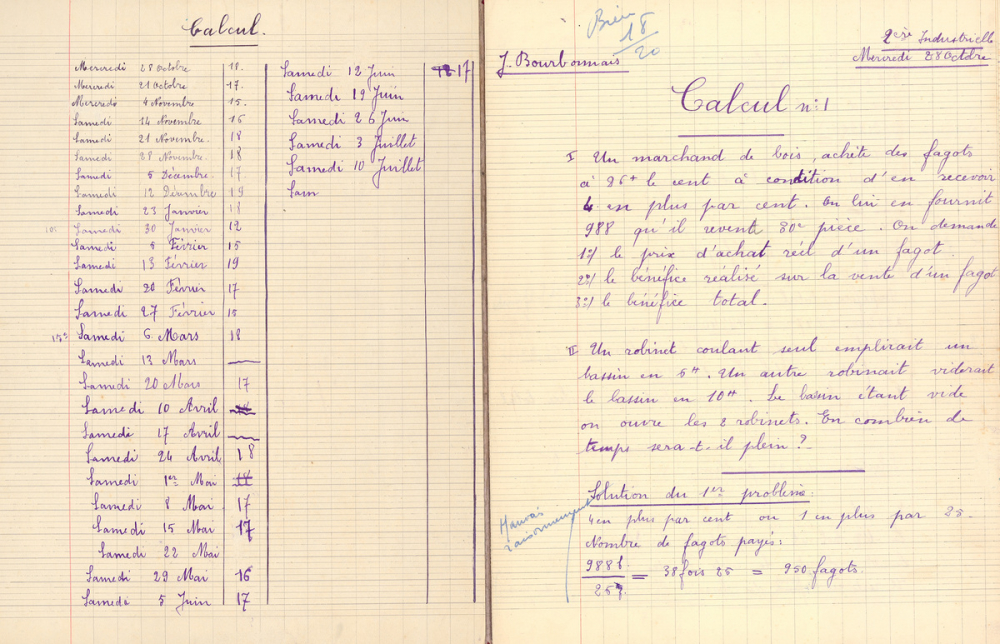 Calcul.
Mercredi 28 Octobre 18.
Mercredi 21 Octobre 17.
Mercredi 4 Novembre 15.
Samedi 14 Novembre 16
Samedi 21 Novembre. 18
Samedi 28 Novembre. 18
Samedi 5 Décembre. 17
Samedi 12 Décembre 19
Samedi 23 Janvier 18
Samedi 30 Janvier 12
Samedi 6 Février 15
Samedi 13 Février 19
Samedi 20 Février 17
Samedi 27 Février 15
Samedi 6 Mars 18
Samedi 13 Mars
Samedi 20 Mars 17
Samedi 10 Avril
Samedi 17 Avril
Samedi 24 Avril 18
Samedi 1er Mai
Samedi 8 Mai 17
Samedi 15 Mai 17
Samedi 22 Mai
Samedi 29 Mai 16
Samedi 5 Juin 17
Samedi 12 Juin 17
Samedi 19 Juin
Samedi 26 Juin
Samedi 3 Juillet
Samedi 10 Juillet
Sam
Bien 18/20
2ère Industrielle
J. Bourbonnais
Mercredi 28 Octobre
Calcul n:1
I Un marchand de bois, achète des fagots
à le cent à condition d'en recevoir
4 en plus par cent. On lui en fournit
988 qu'il revente 30c pièce. On demande
1º/ le prix d'achat réel d'un fagot.
2º/ le bénéfice réalisé sur la vente d'un fagot
3º/ le bénéfice total.
II Un robinet coulant seul emplirait un
bassin en 5H. Un autre robinait viderait
le bassin en 10H. Le bassin étant vide
on ouvre les 2 robinets. En combien de
temps sera-t-il plein?
Solution du 1er problème.
Mauvais raisonnement
4 en plus par cent ou 1 en plus par 25.
Nombre de fagots payés:
= 38 fois 25 = 950 fagots.